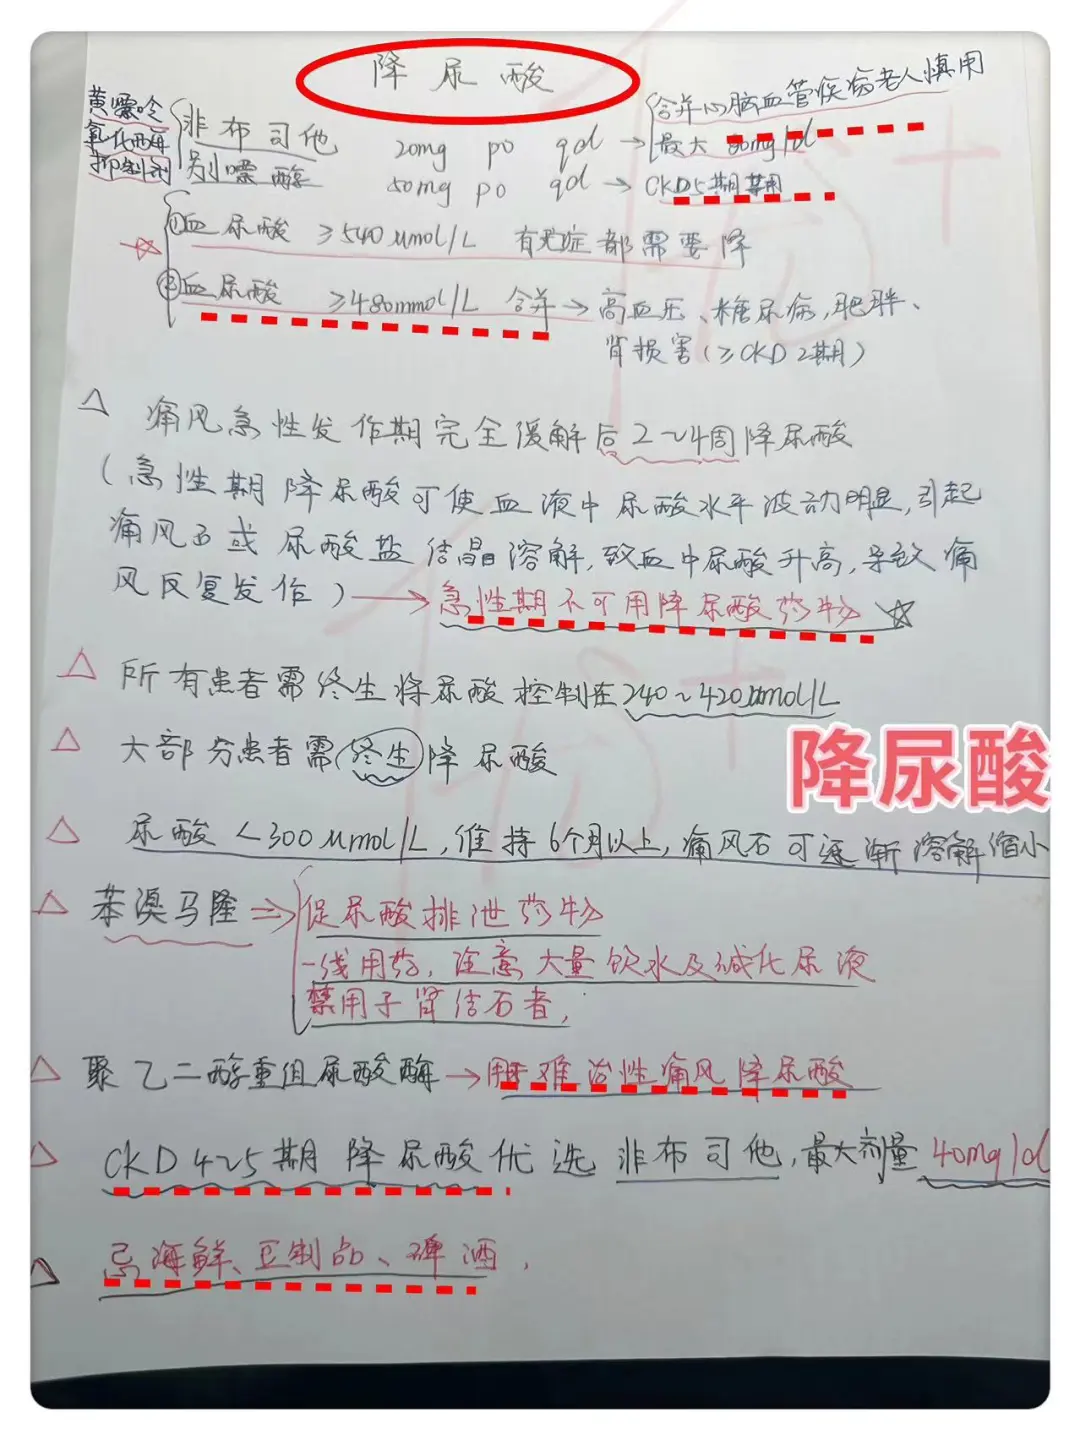 降尿酸
黄嘌呤
氧化酶
抑制剂
非布司他 20mg po qd → 合并心脑血管疾病老人慎用
最大 80mg/d
别嘌醇 50mg po qd → CKD5期禁用
①血尿酸 ≥540μmol/L 有无症都需要降
②血尿酸 ≥480mmol/L 合并→高血压、糖尿病,肥胖、
肾损害(≥CKD 2期)
△ 痛风急性发作期完全缓解后2~4周降尿酸
(急性期降尿酸可使血液中尿酸水平波动明显,引起
痛风 或尿酸盐结晶溶解,致血中尿酸升高,导致痛
风反复发作)→急性期不可用降尿酸药物☆
△ 所有患者需终生将尿酸控制在240~420μmol/L
△ 大部分患者需终生降尿酸
降尿酸
△ 尿酸<300μmol/L,维持6个月以上,痛风石可逐渐溶解缩小
△ 苯溴马隆⇒促尿酸排泄药物
一线用药,注意大量饮水及碱化尿液
禁用于肾结石者,
△ 聚乙二醇重组尿酸酶→用 难治性痛风降尿酸
△ CKD4~5期降尿酸优选非布司他,最大剂量40mg/d
△ 忌海鲜、豆制品、啤酒,